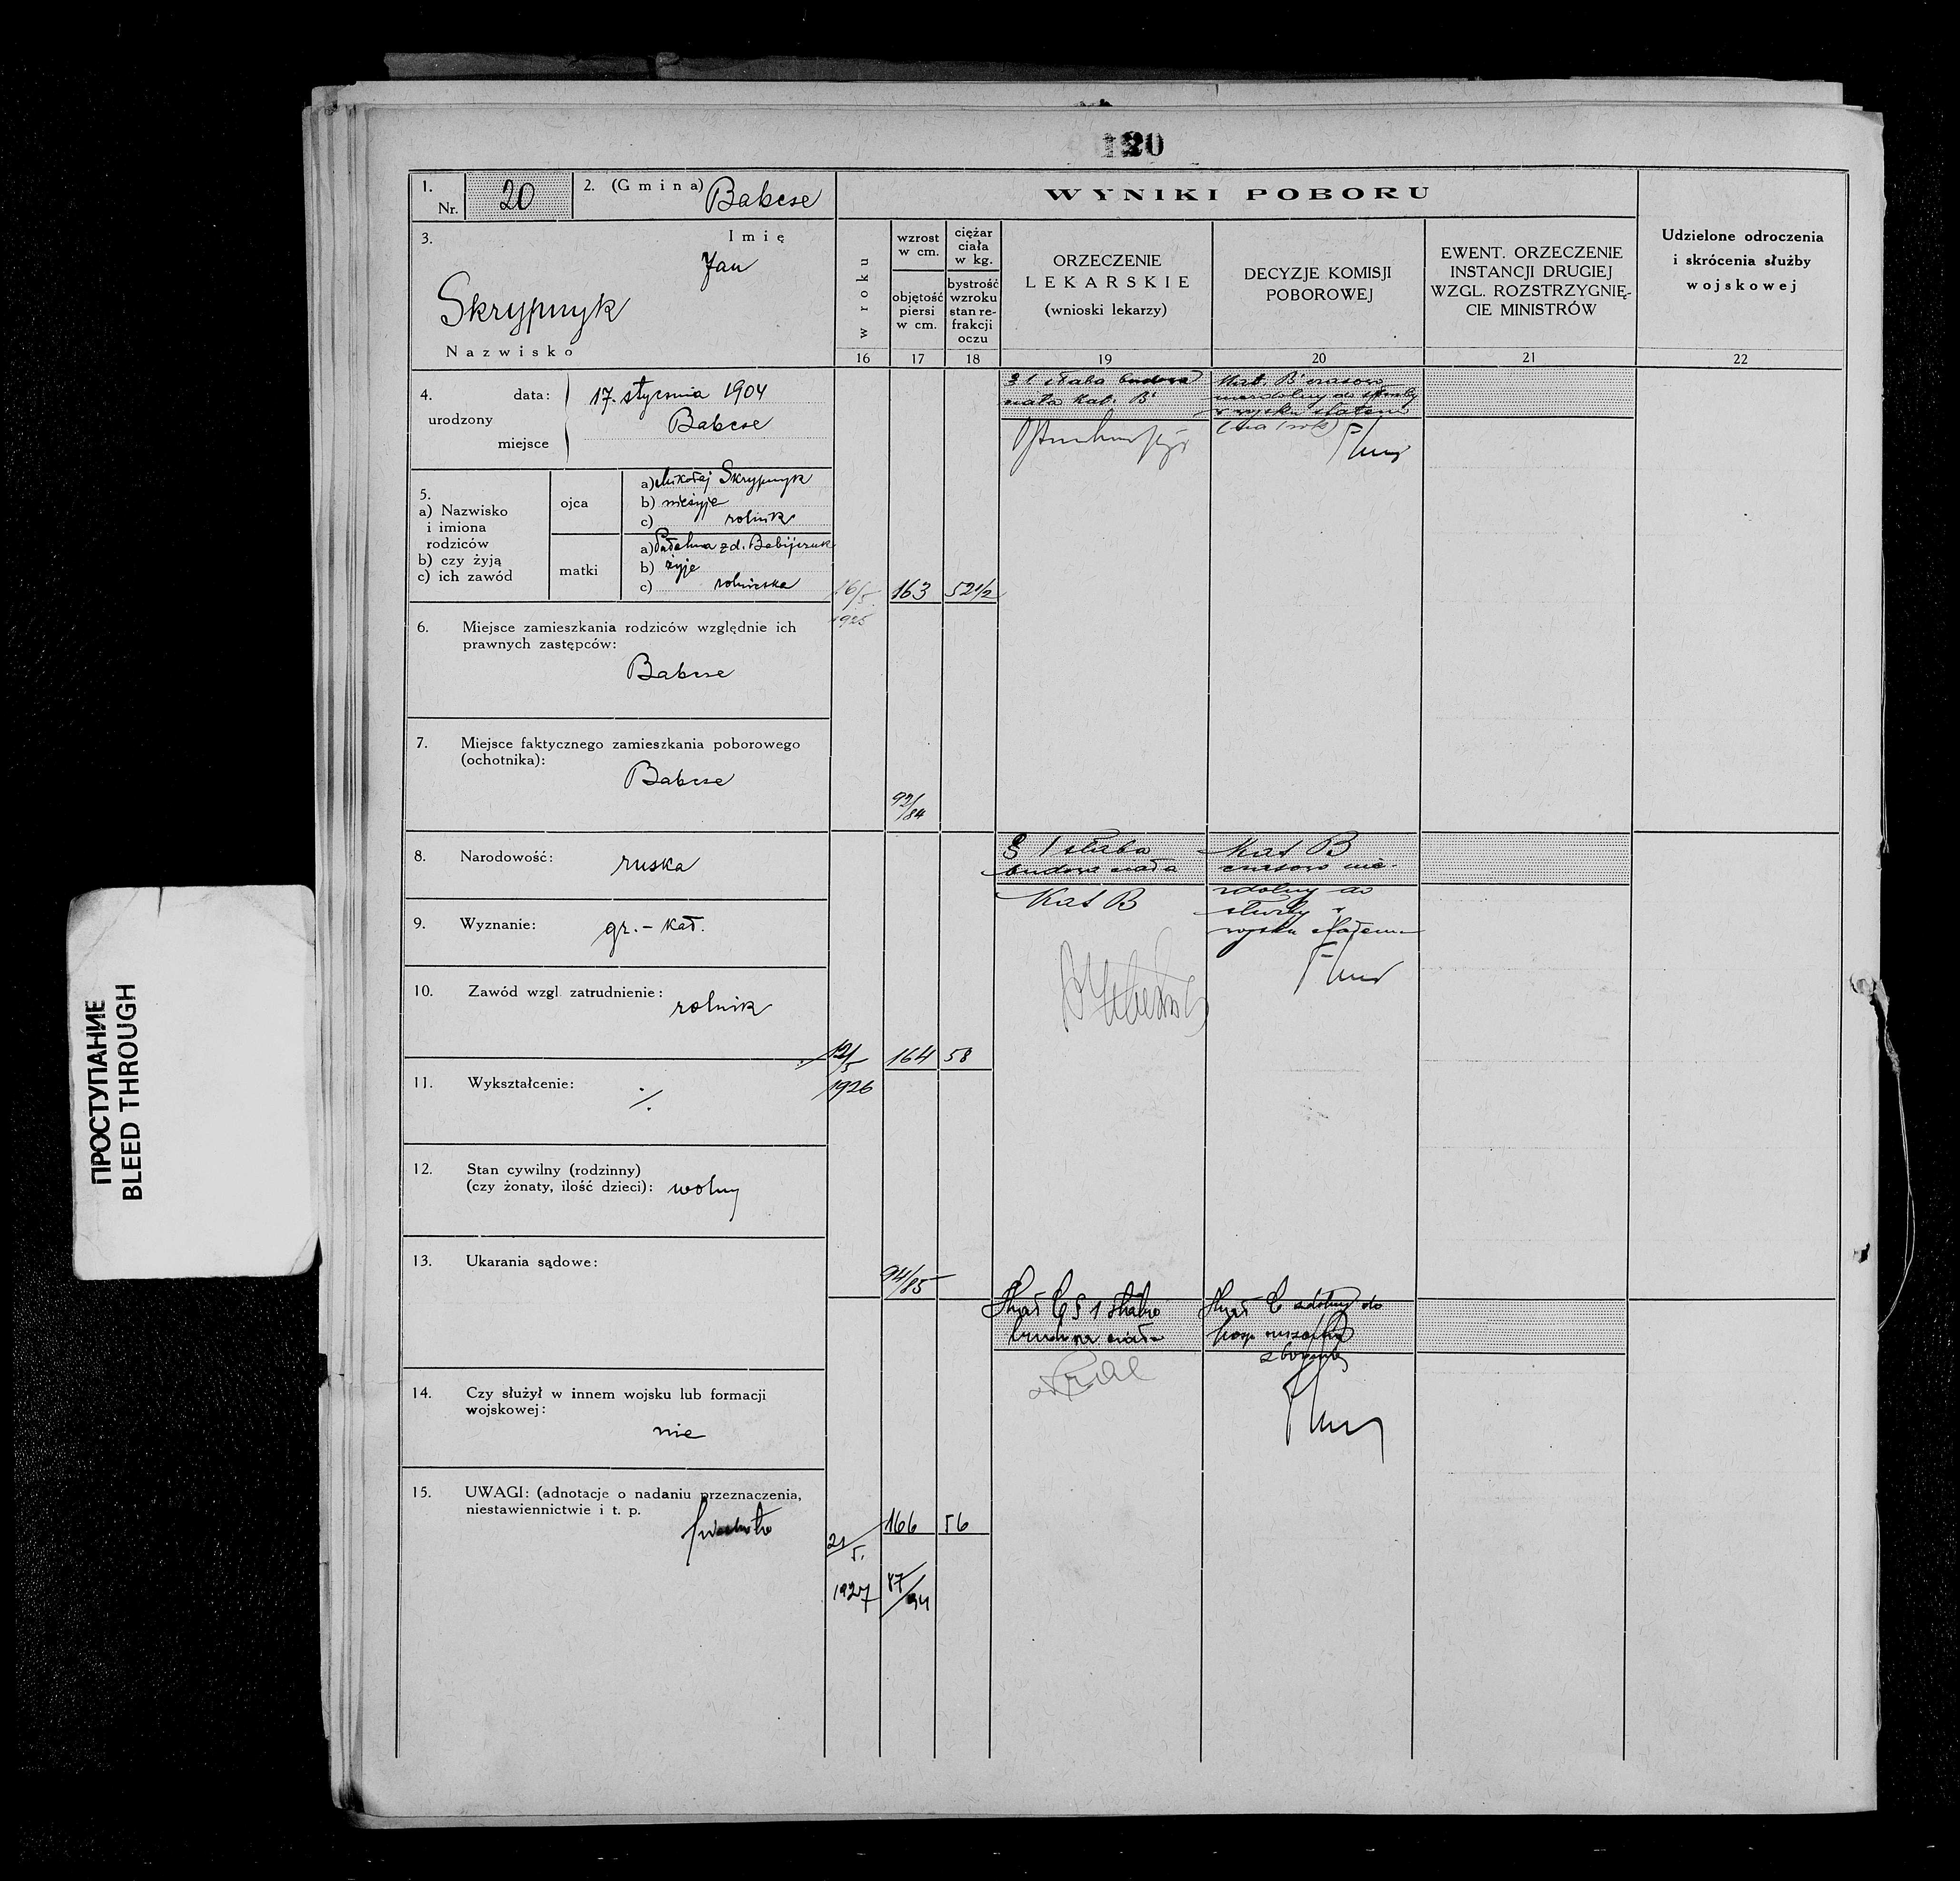 120
1. Nr. 20 2. (Gmina) Babcse
WYNIKI POBORU
3. Imię
Jan
Skrypnyk
Nazwisko
w roku
wzrost w cm.
objętość piersi w cm.
ciężar ciała w kg.
bystrość wzroku stan re-frakcji oczu
ORZECZENIE
LEKARSKIE
(wnioski lekarzy)
DECYZJE KOMISJI
POBOROWEJ
EWENT. ORZECZENIE
INSTANCJI DRUGIEJ
WZGL. ROZSTRZYGNIĘ-
CIE MINISTRÓW
Udzielone odroczenia
i skrócenia służby
wojskowej
16 17 18 19 20 21 22
4. urodzony
data: 17. stycznia 1904
miejsce Babcse
5.
a) Nazwisko
i imiona
rodziców
b) czy żyją
c) ich zawód
ojca
a) Mikołaj Skrypnyk
b) nieżyje
c) rolnik
matki
a) zd. Babijczuk
b) żyje
c) rolniczka
6. Miejsce zamieszkania rodziców względnie ich
prawnych zastępców:
Babcse
7. Miejsce faktycznego zamieszkania poborowego
(ochotnika):
Babcse
8. Narodowość: ruska
9. Wyznanie: gr.-kat.
10. Zawód wzgl. zatrudnienie: rolnik
11. Wykształcenie: ·/.
12. Stan cywilny (rodzinny)
(czy żonaty, ilość dzieci): wolny
13. Ukarania sądowe:
14. Czy służył w innem wojsku lub formacji
wojskowej:
nie
15. UWAGI: (adnotacje o nadaniu przeznaczenia,
niestawiennictwie i t. p.
16/5. 163 52 1/2
1925
92/84
§ 1 słaba budowa
ciała Kat. B
Kat. B czasowo
niezdolny do służby
w wojsku stałem
(na 1 rok)
5 164 58
1926
94/85
§ 1 słaba
budowa ciała
Kat B
Kat B
czasowo nie-
zdolny do
służby w
wojsku stałem
21/5. 166 56
1927 87/94
Kat C § 1 słaba
budowa ciała
Kat C zdolny do
posp. ruszenia
z bronią
ПРОСТУПАНИЕ
BLEED THROUGH